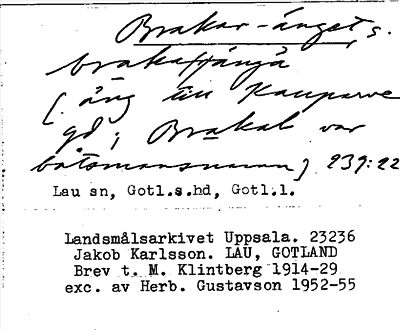 Brakar-änget, s.
braka
[ äng till Kauparve
gd; Brakal var
båtsmansnamn] 239:22
Lau sn, Gotl.s.hd, Gotl.l.
Landsmålsarkivet Uppsala. 23236
Jakob Karlsson. LAU, GOTLAND
Brev t. M. Klintberg 1914-29
exc. av Herb. Gustavson 1952-55